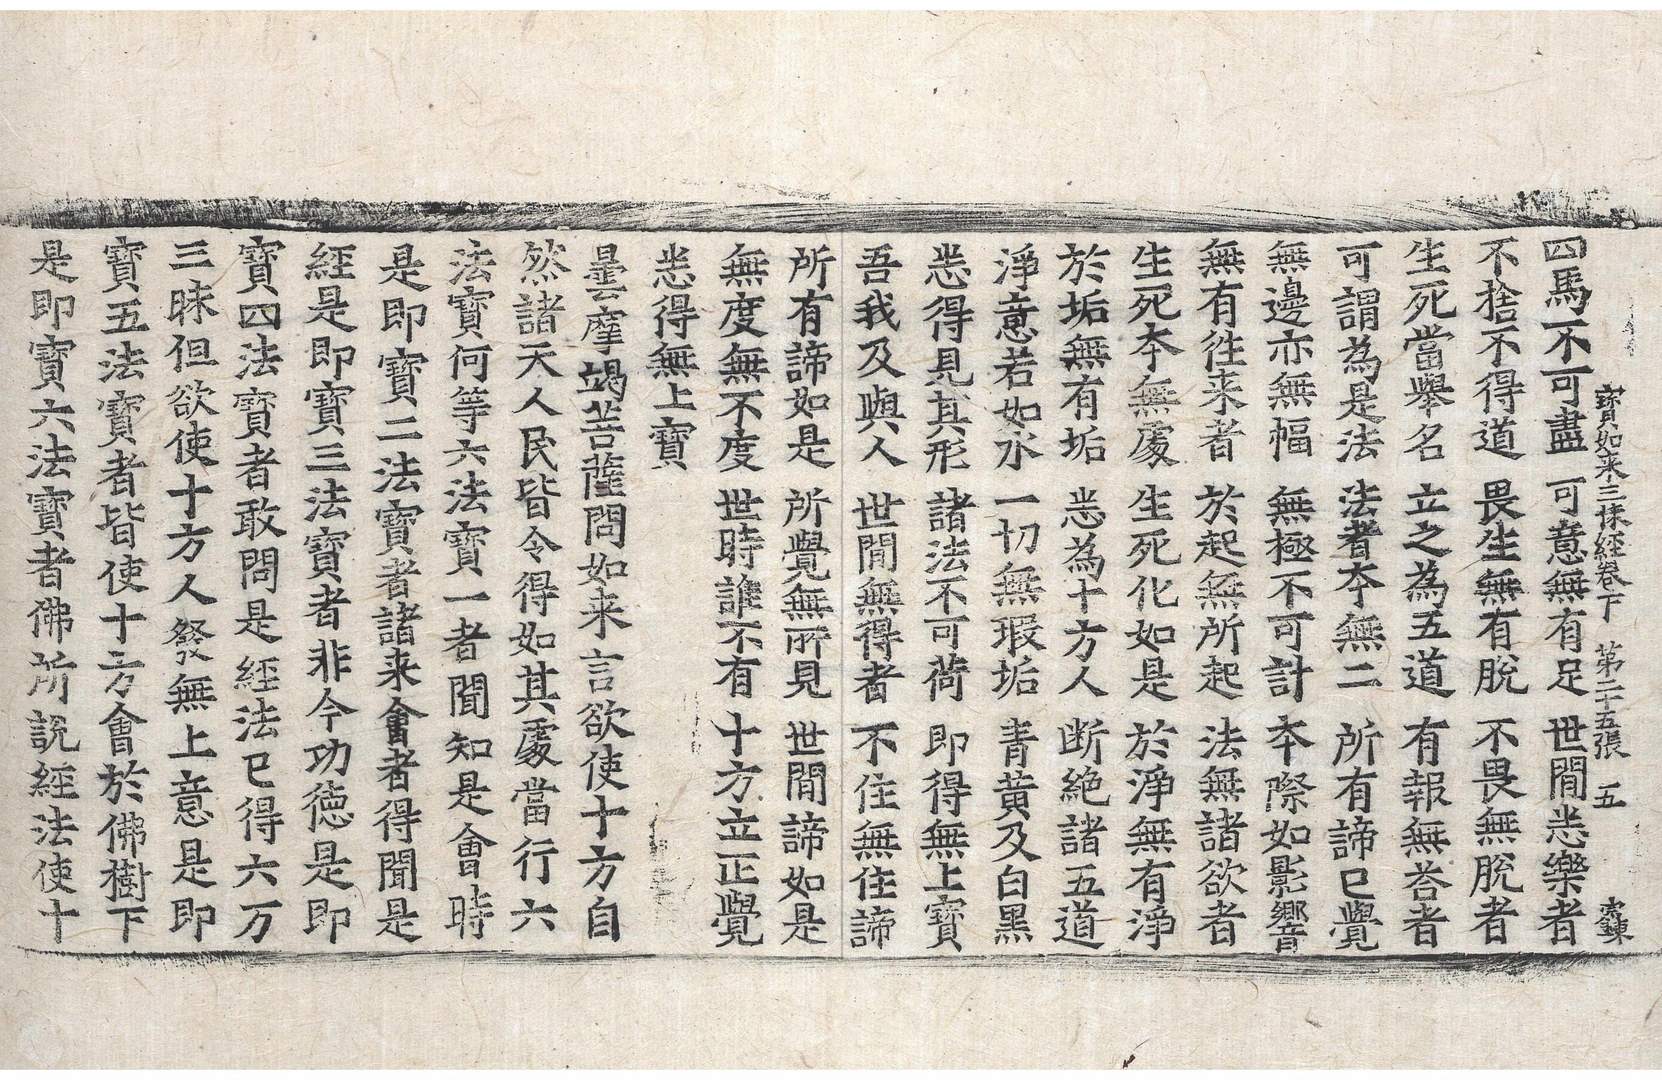 寶如来三昧經卷下 第二十五張 五
四馬不可盡 可意無有足 世閒悉樂者
不捨不得道 畏生無有脫 不畏無脫者
生死當舉名 立之為五道 有報無答者
可謂為是法 法者夲無二 所有諦已覺
無邊亦無幅 無極不可計 夲際如影響
無有徃来者 於起無所起 法無諸欲者
生死夲無處 生死化如是 於淨無有淨
於垢無有垢 悉為十方人 断絶諸五道
淨意若如水 一切無瑕垢 青黄及白黑
悉得見其形 諸法不可荷 即得無上寶
吾我及與人 世閒無得者 不住無住諦
所有諦如是 所覺無所見 世閒諦如是
無度無不度 世時誰不有 十方立正覺
悉得無上寶
曇摩竭菩薩問如来言欲使十方自
然諸天人民皆令得如其處當行六
法寶何等六法寶一者聞知是會時
是即寶二法寶者諸来會者得聞是
經是即寶三法寶者非今功徳是即
寶四法寶者敢問是經法已得六万
三昧但欲使十方人發無上意是即
寶五法寶者皆使十方會於佛樹下
是即寶六法寶者佛所説經法使十